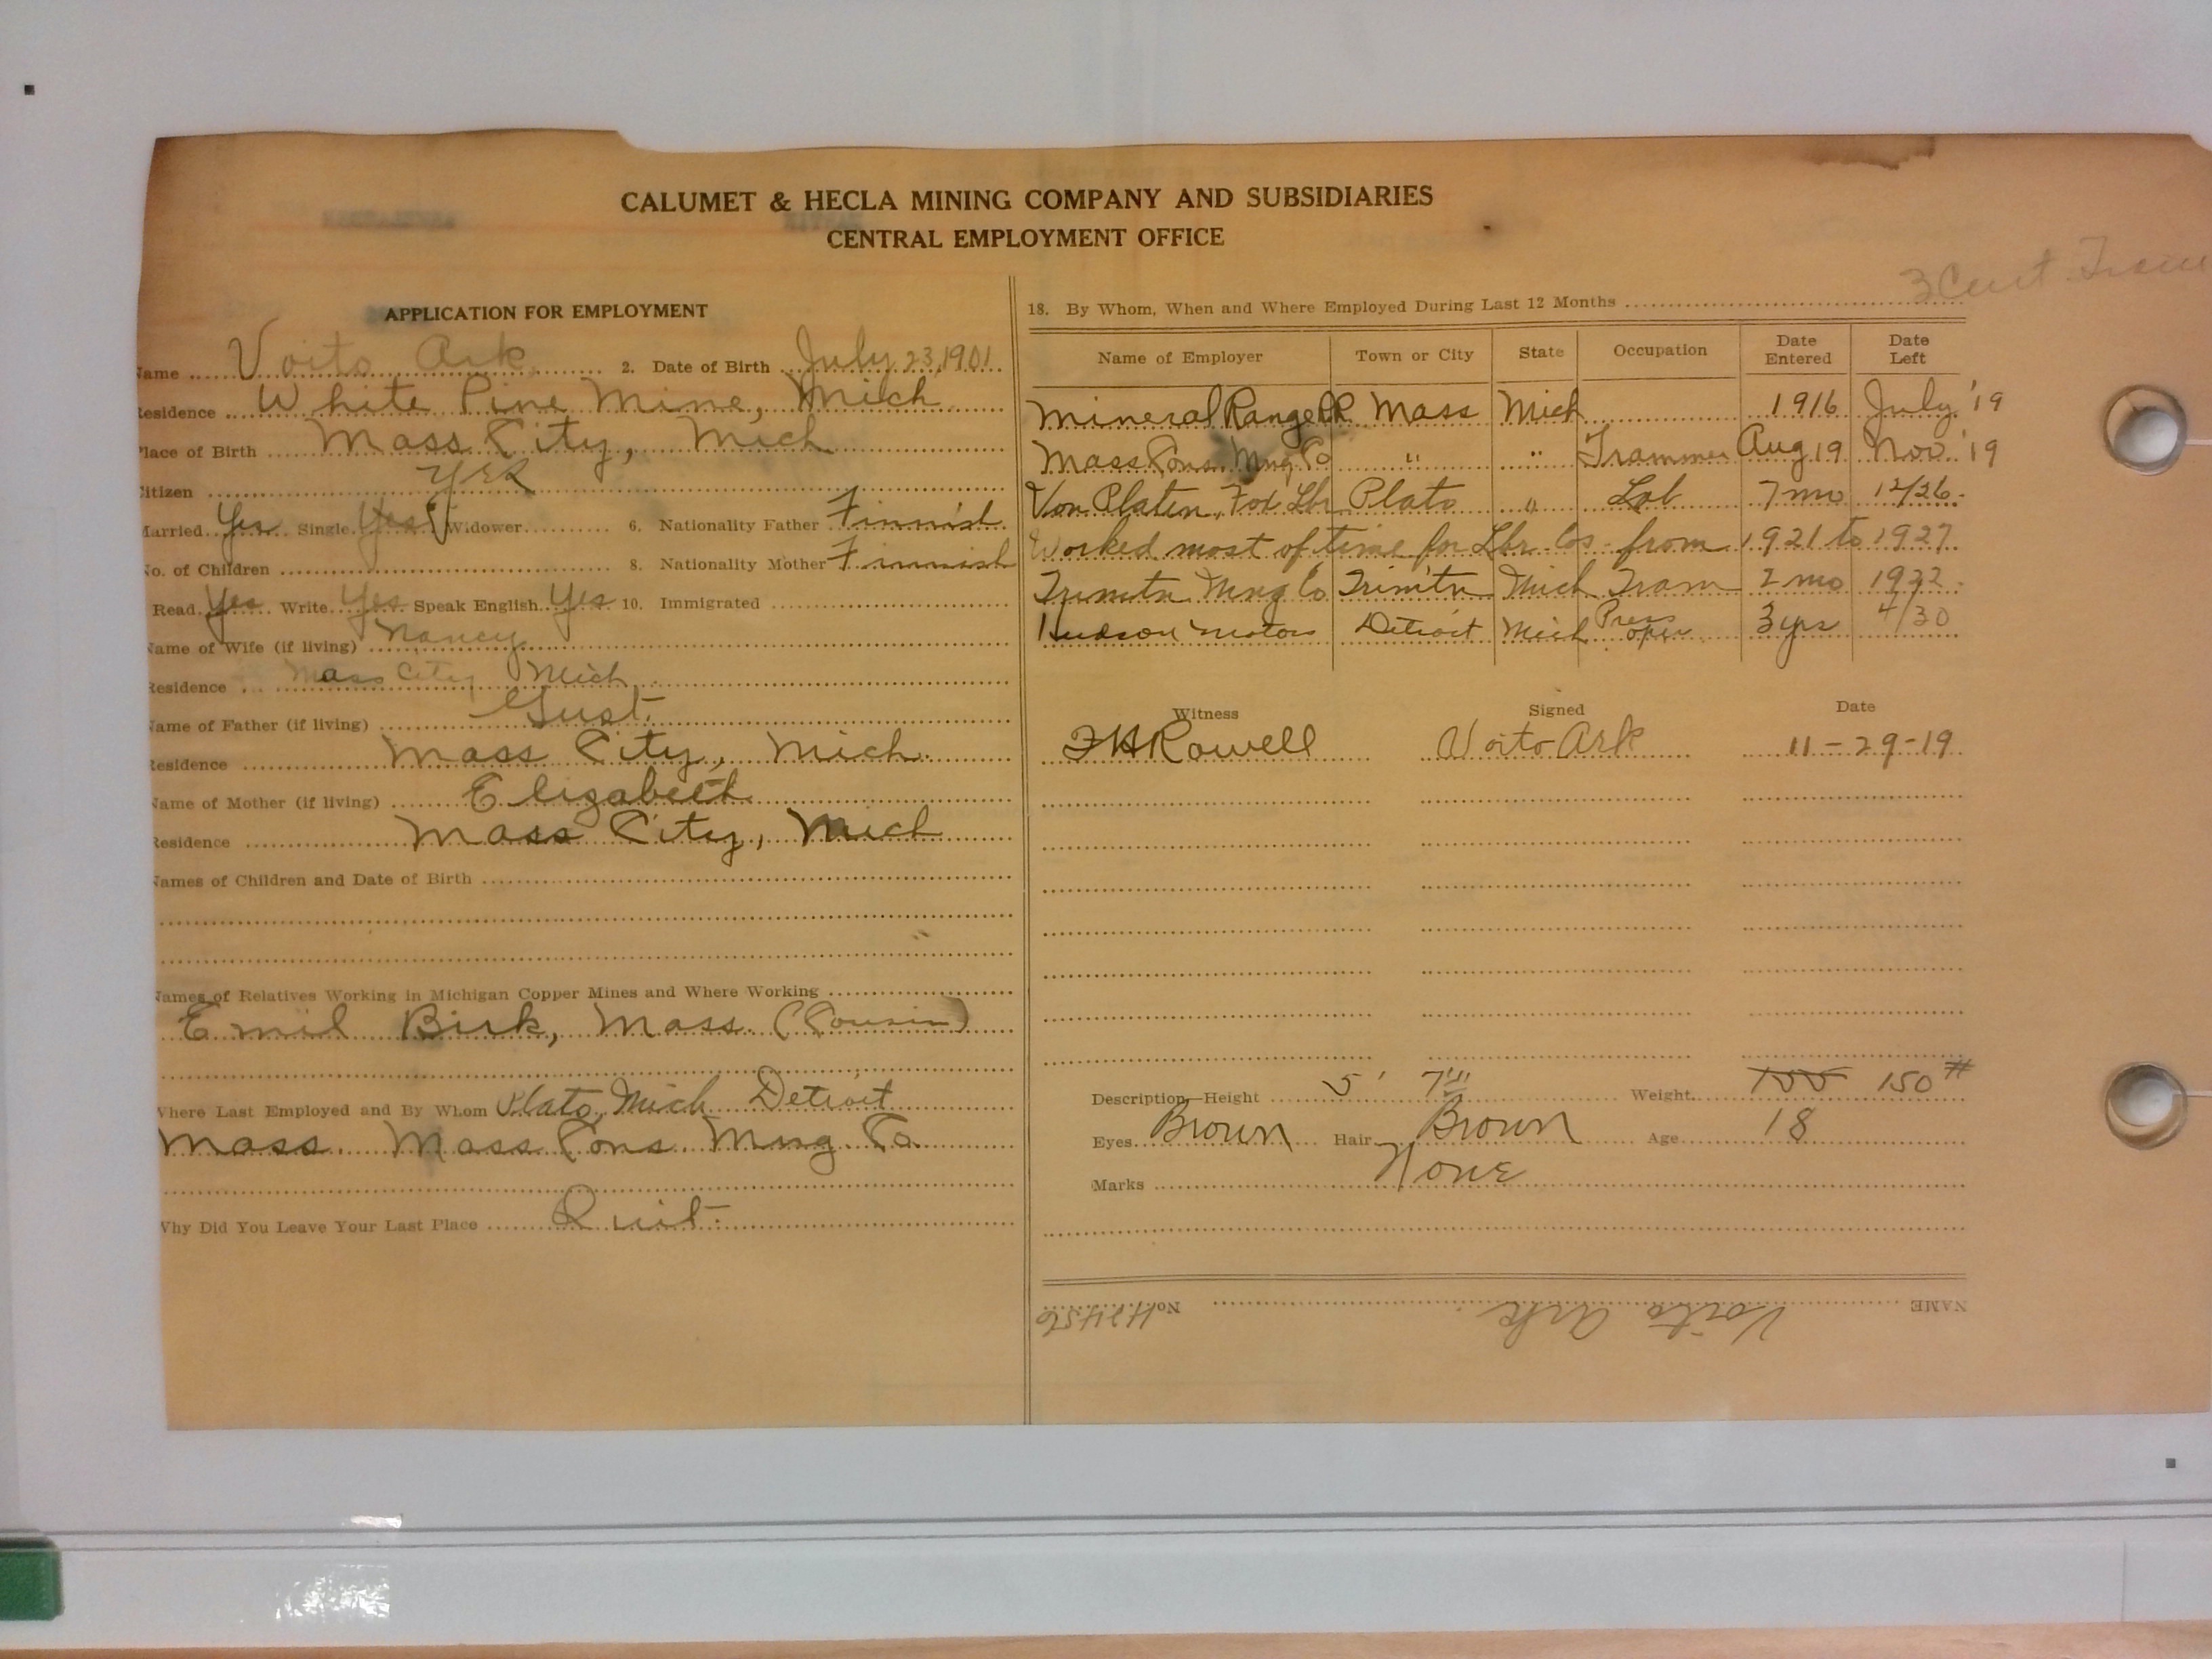 CALUMET & HECLA MINING COMPANY AND SUBSIDIARIES
CENTRAL EMPLOYMENT OFFICE
APPLICATION FOR EMPLOYMENT
Name Voito Ark 2. Date of Birth July 23, 1901
Residence White Pine Mine, Mich
Place of Birth Mass City, Mich
Citizen Yes
Married Yes Single Yes Widower 6. Nationality Father Finnish
No. of Children 8. Nationality Mother Finnish
Read Yes Write Yes Speak English Yes 10. Immigrated
Name of Wife (if living) Nancy
Residence Mass City Mich
Name of Father (if living) Gust
Residence Mass City, Mich.
Name of Mother (if living) Elizabeth
Residence Mass City, Mich
Names of Children and Date of Birth
Names of Relatives Working in Michigan Copper Mines and Where Working
Emil Birk, Mass. (Cousin)
Where Last Employed and By Whom Plato, Mich Detroit
Mass. Mass Cons. Mng. Co.
Why Did You Leave Your Last Place Quit
3 Cent.
18. By Whom, When and Where Employed During Last 12 Months
Name of Employer Town or City State Occupation Date Entered Date Left
Mineral Range RR Mass Mich 1916 July '19
Mass Cons. Mng Co " " Trammer Aug 19 Nov '19
Von Platen, Fox Lbr Plato " Lab 7 mo 12/26
Worked most of time for Lbr. Cos. from 1921 to 1927
Mng Co Mich Tram 2 mo
Hudson Motors Detroit Mich Press oper 3 yrs 4/30
Witness Signed Date
FH Rowell Voito Ark 11-29-19
Description—Height 5' 7''' Weight 155 150 #
Eyes Brown Hair Brown Age 18
Marks None
NAME Voito Ark No. H2456